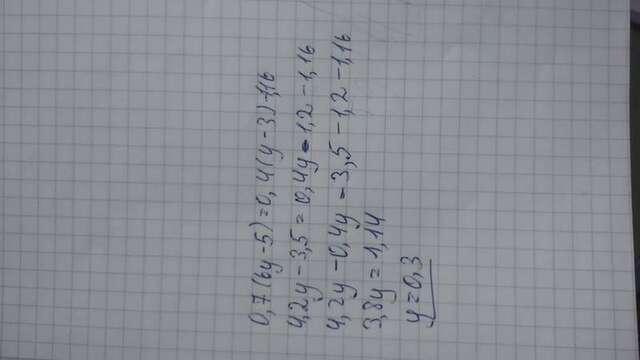 0,7(6y-5)=0,4(y-3)-1,16
4,2y-3,5=0,4y-1,2-1,16
4,2y-0,4y=3,5-1,2-1,16
3,8y=1,14
y=0,3